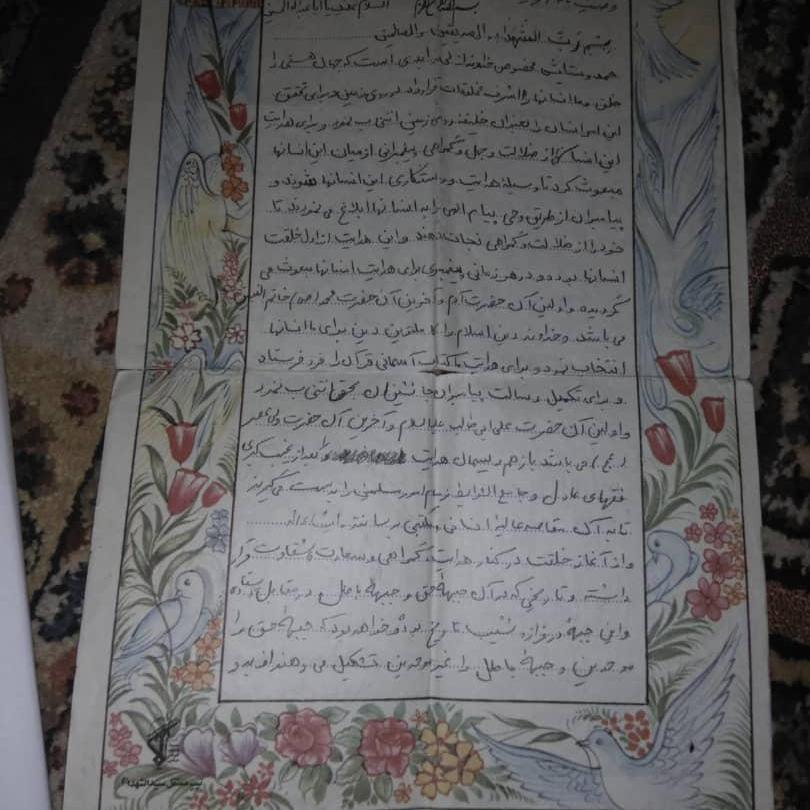 بسم رب الشهداء و الصدیقین و الصالحین
حمد و ستایش مخصوص خداوند لم یزلی و ابدی است که جهان هستی را
خلق و ما انسانها را اشرف مخلوقات قرار داد و در روی زمین و برای تحقق
این امر انسان را بعنوان خلیفه روی زمین انتخاب نمود و برای هدایت
این انسانها از ضلالت و جهل و گمراهی پیامبرانی از میان این انسانها
مبعوث کرد تا وسیله هدایت و رستگاری این انسانها شوند و
پیامبران از طریق وحی پیام الهی را به انسانها ابلاغ می نمودند تا
خود را از ضلالت و گمراهی نجات دهند و این هدایت از اول خلقت
انسانها بوده و در هر زمانی پیامبری برای هدایت انسانها مبعوث می
گردیده و اولین آن حضرت آدم و آخرین آن حضرت محمد (ص) خاتم النبیین
می باشد و خداوند دین اسلام را کاملترین دین برای ما انسانها
انتخاب نمود و برای هدایت ما کتاب آسمانی قرآن را فرو فرستاد
و برای تکمیل رسالت پیامبران جانشینان بحق انتخاب نمود
و اولین آن حضرت علی ابن ابیطالب علیه السلام و آخرین آن حضرت ولی عصر
(عج) می باشد باز هم ریسمان هدایت و بعد از غیبت کبری
فقهای عادل و جامع الشرایط زمام امور مسلمین را بدست می گیرند
تا به آن مقاصد عالیه انسانی و مکتبی برسانند انشاءالله
و از آغاز خلقت در کنار هدایت گمراهی و سعادت شقاوت قرار
داشته و تاریخی که در آن جبهۀ حق و جبهۀ باطل در مقابل
و این جبهۀ در فراز و نشیب تاریخ بوده و خواهد بود که جبهۀ حق را
موحدین و جبهۀ باطل را غیر موحدین تشکیل می دهند